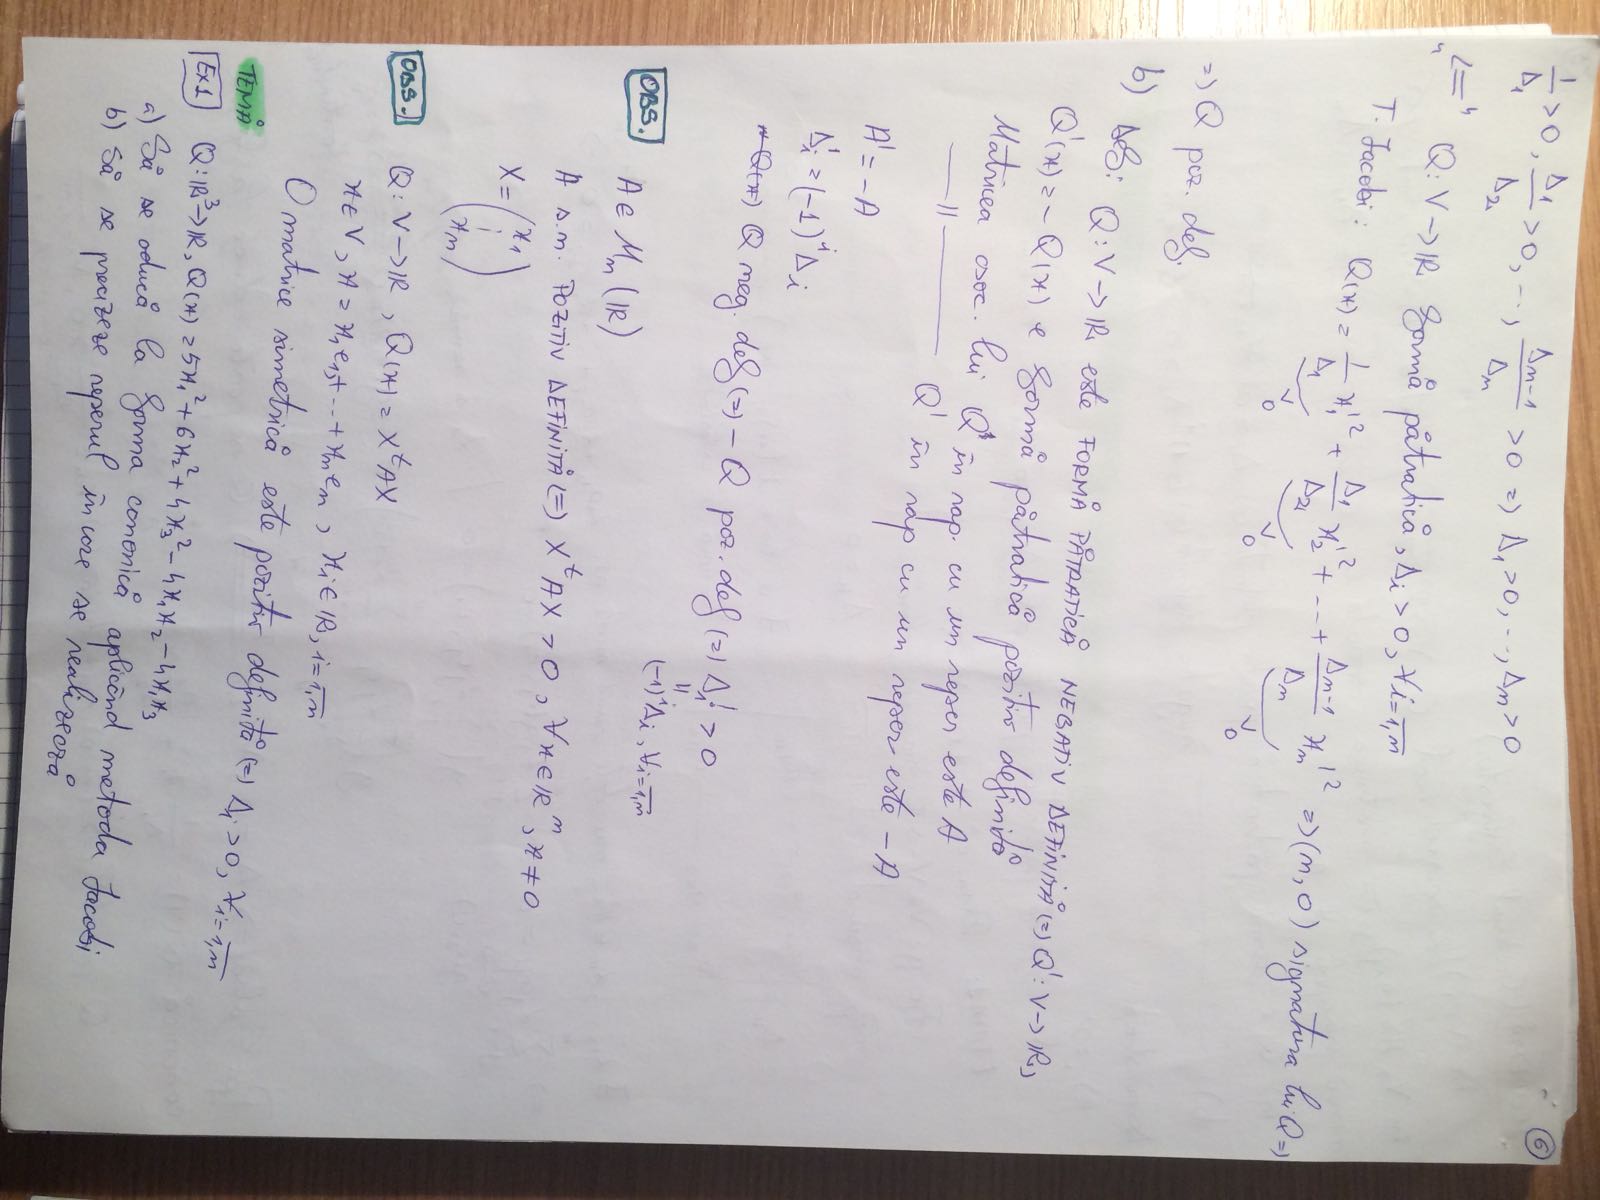 6
1/Δ1 > 0, Δ1/Δ2 > 0, ..., Δn-1/Δn > 0 => Δ1 > 0, ..., Δn > 0
"<=" Q: V → ℝ formă pătratică, Δi > 0, ∀i = 1,n
T. Jacobi: Q(x) = 1/Δ1 x1'² + Δ1/Δ2 x2'² + ... + Δn-1/Δn xn'² => (n, 0) signatura lui Q =>
V 0 V 0 V 0
=> Q poz. def.
b) Def: Q: V → ℝ este FORMĂ PĂTRATICĂ NEGATIV DEFINITĂ (=) Q': V → ℝ,
Q'(x) = - Q(x) e formă pătratică pozitiv definită
Matricea asoc. lui Q în rap. cu un reper este A
— 11 — Q' în rap cu un reper este -A
A' = -A
Δ'i = (-1)^i Δi
Q(x) Q neg. def (=) - Q poz. def (=) Δ'i > 0
"
(-1)^i Δi, ∀i = 1,n
OBS. A ∈ Mn (ℝ)
A s.n. POZITIV DEFINITĂ (=) X^t A X > 0, ∀x ∈ ℝ^n, x ≠ 0
X = (x1 ⋮ xn)
OBS. Q: V → ℝ, Q(x) = X^t A X
x ∈ V, x = x1e1 + ... + xnen, xi ∈ ℝ, i = 1,n
O matrice simetrică este pozitiv definită (=) Δi > 0, ∀i = 1,n
TEMĂ
Ex1 Q: ℝ³ → ℝ, Q(x) = 5x1² + 6x2² + 4x3² - 4x1x2 - 4x1x3
a) Să se aducă la forma canonică aplicând metoda Jacobi
b) Să se precizeze reperul în care se realizează